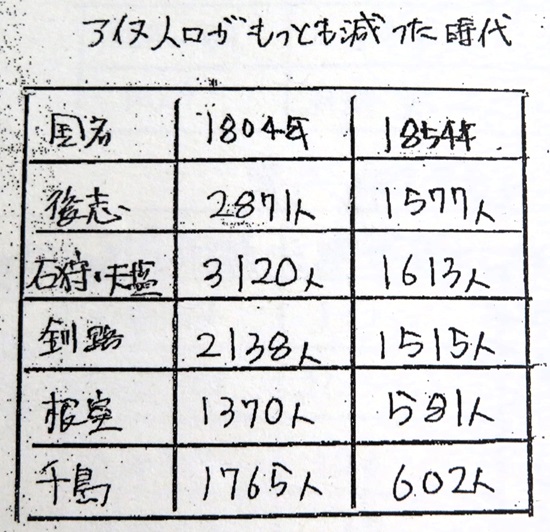 アイヌ人口がもっとも減った時代
国名 1804年 1854年
後志 2871人 1577人
石狩・天塩 3120人 1613人
釧路 2138人 1515人
根室 1370人 581人
千島 1765人 602人